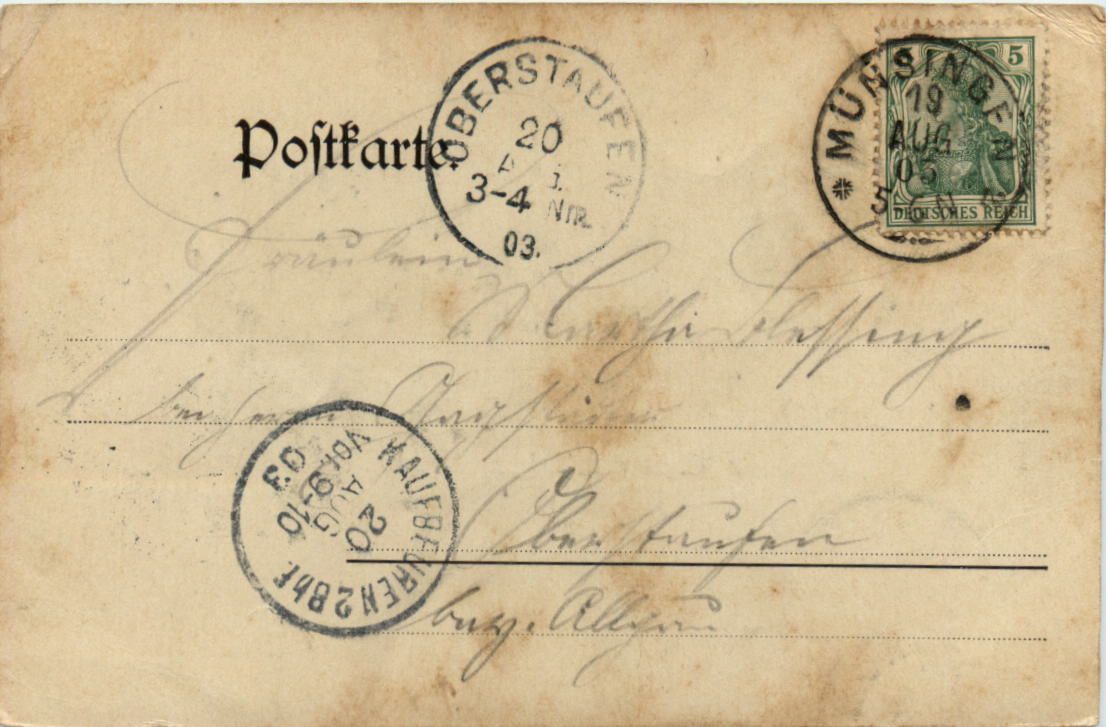 Postkarte.
OBERSTAUFEN
20
3-4 Nm.
03.
MÜNSINGEN
19
AUG
5
DEUTSCHES REICH
Fräulein
Martha Flessing
bei Herrn
Oberstaufen
bayr. Allgäu
KAUFBEUREN 2 Bhf.
20
AUG
Vor. 9-10
03